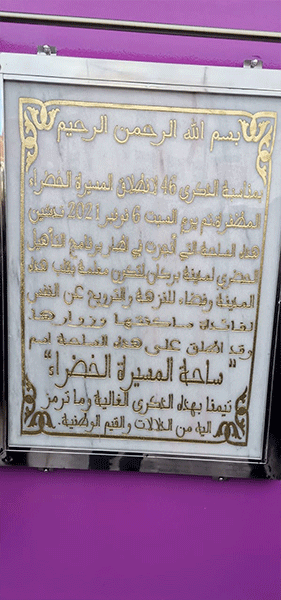 بسم الله الرحمن الرحيم
بمناسبة الذكرى 46 لانطلاق المسيرة الخضراء
المظفرة تم يوم السبت 6 نونبر 2021 تدشين
هذه الساحة التي أنجزت في إطار برنامج التأهيل
الحضري لمدينة بركان لتكون معلمة بقلب هذه
المدينة وفضاء للنزهة والترويح عن النفس
لفائدة ساكنتها وزوارها
وقد أطلق على هذه الساحة اسم
"ساحة المسيرة الخضراء"
تيمنا بهذه الذكرى الغالية وما ترمز
إليه من الدلالات والقيم الوطنية.